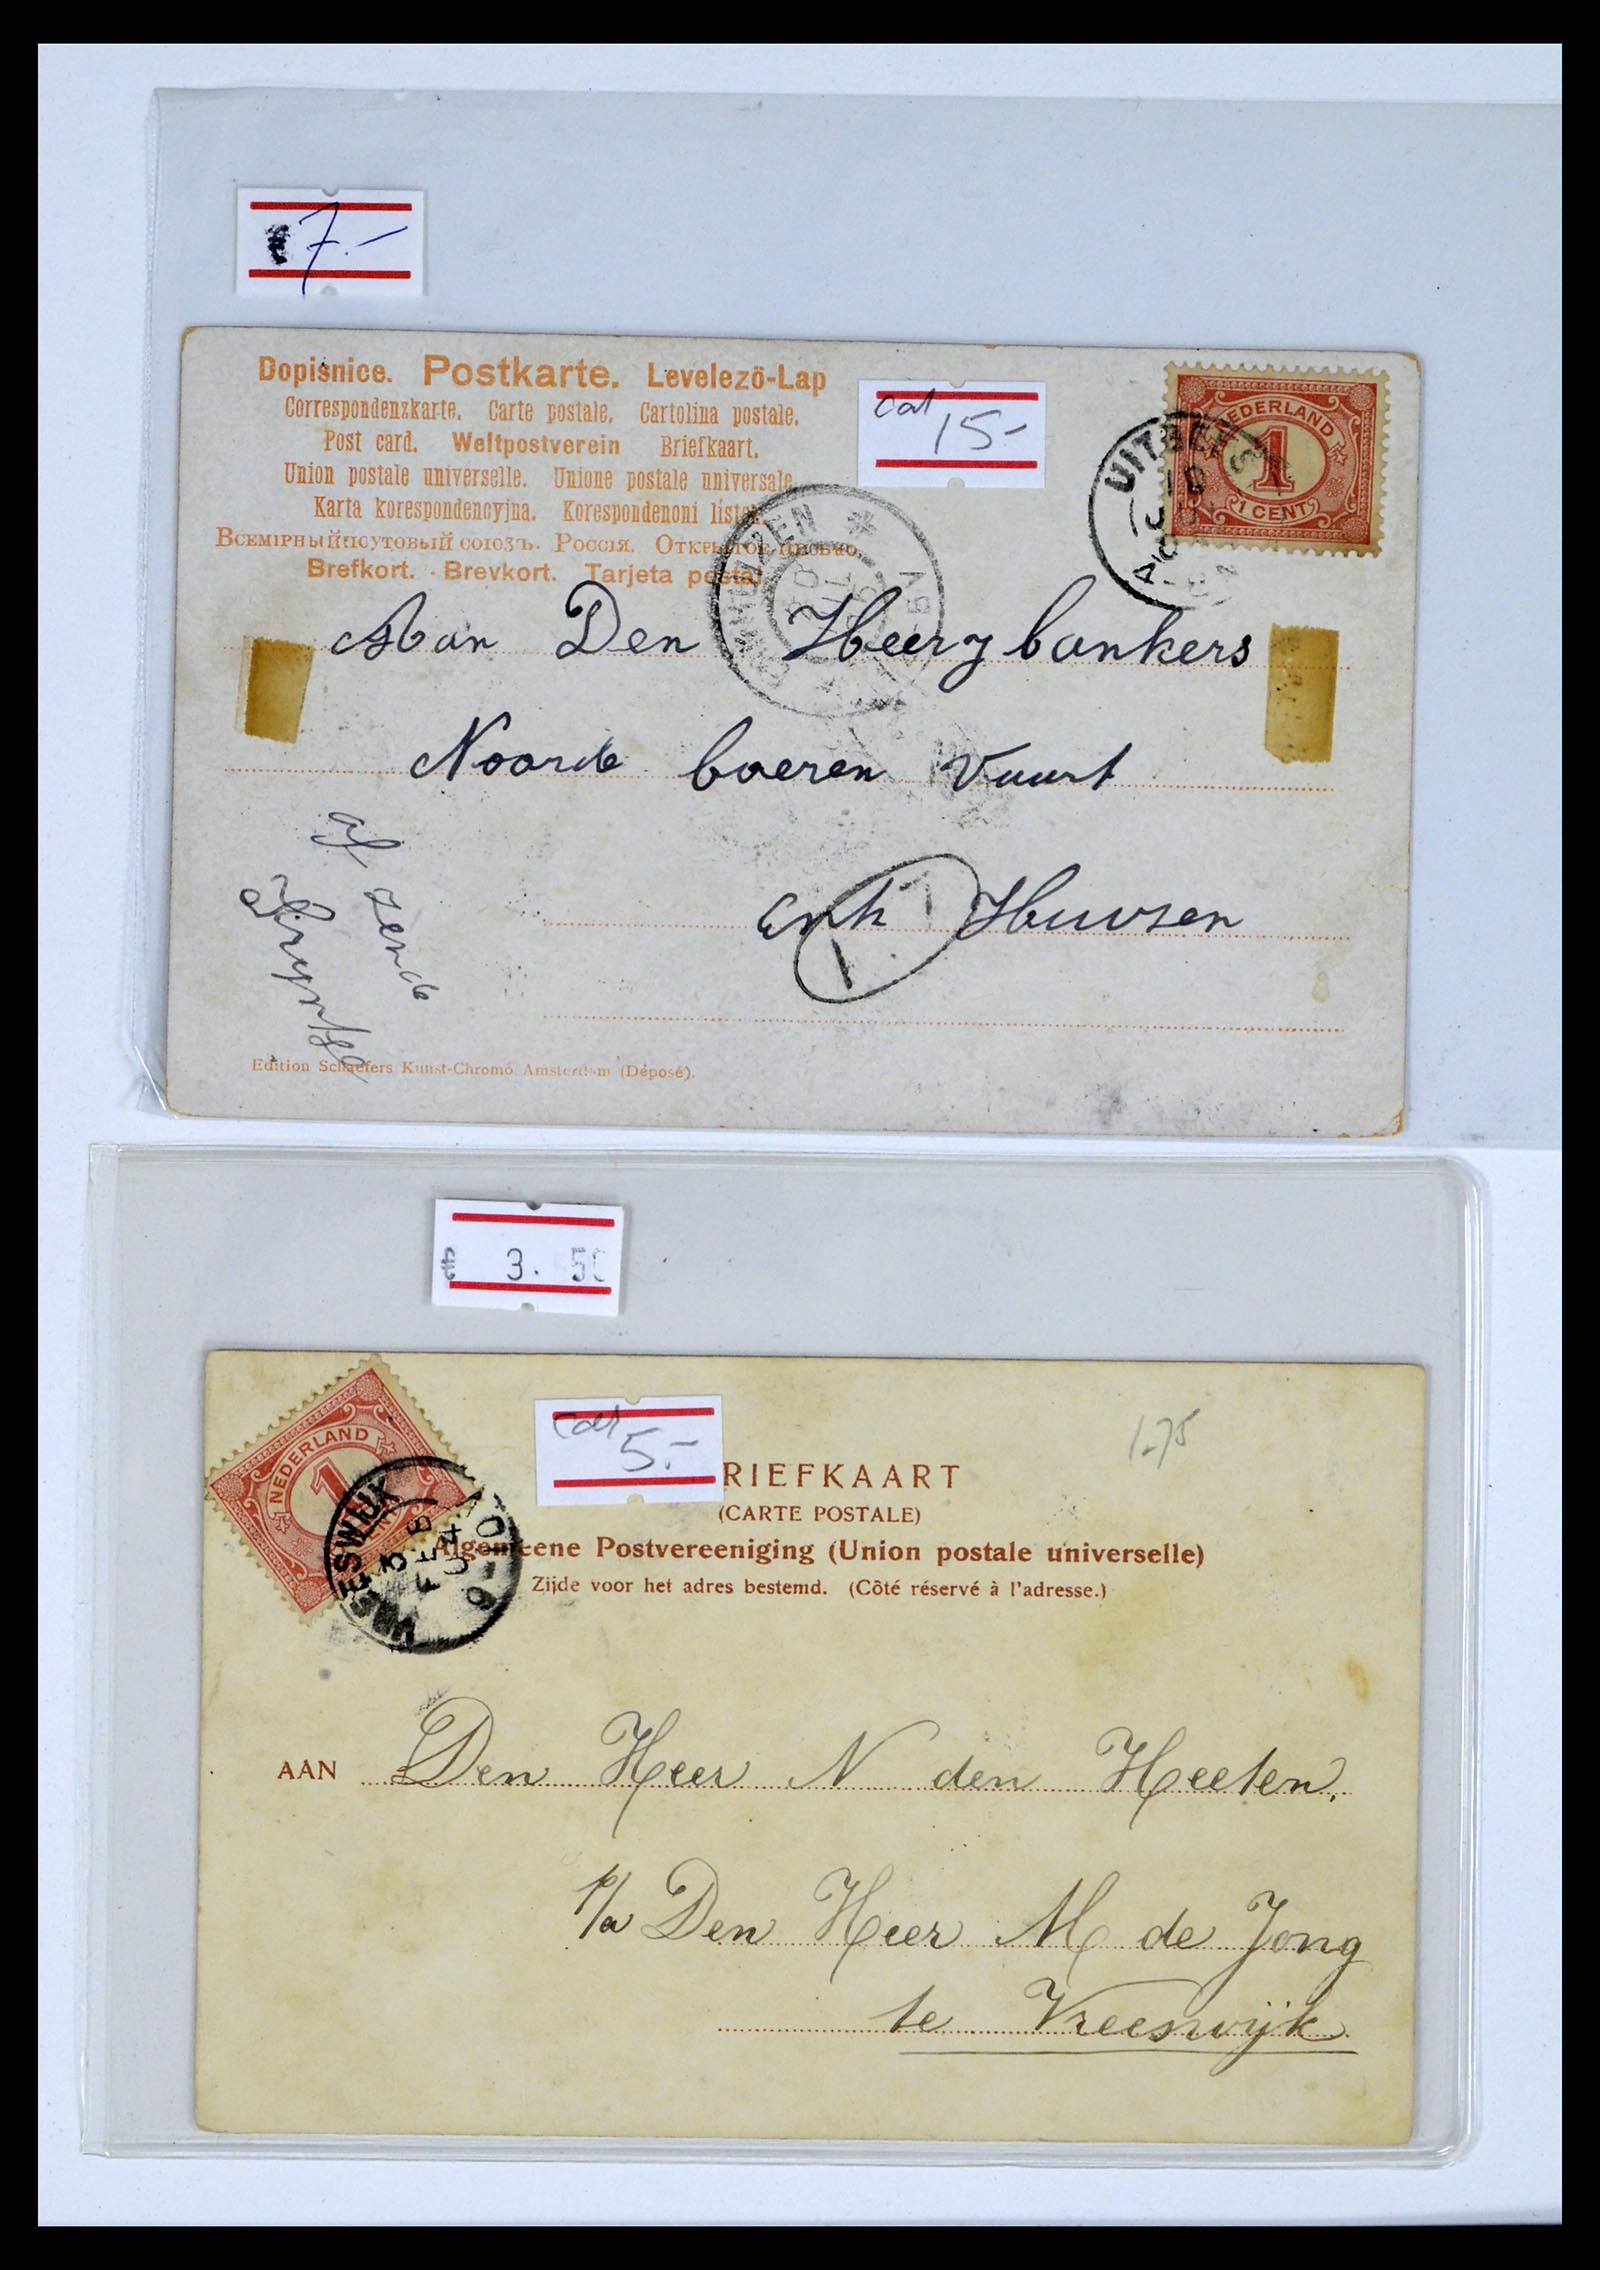 € 7.-
Dopisnice. Postkarte. Levelező-Lap
Correspondenzkarte. Carte postale. Cartolina postale.
Post card. Weltpostverein Briefkaart.
Union postale universelle. Unione postale universale.
Karta korespondencyjna. Korespondenoni listek
ВСЕМIРНЫЙ ПОУТОВЫЙ СОЮЗЪ. РОССIЯ. ОТКРЫТОЕ ПИСЬМО.
Brefkort. Brevkort. Tarjeta postal.
cat
15-
NEDERLAND
1
(1 CENT)
UITGEEST
Aan Den Heer J bankers
Noorde boeren Vaart
Enk Huusen
af zende
Edition Schaefers Kunst-Chromo Amsterdam (Déposé).
€ 3.50
cat
5.-
1-75
NEDERLAND
1
VREESWIJK
3 FEB 04
6-
RIEFKAART
(CARTE POSTALE)
Algemeene Postvereeniging (Union postale universelle)
Zijde voor het adres bestemd. (Côté réservé à l'adresse.)
AAN Den Heer N den Heeten.
p/a Den Heer M de Jong
te Vreeswijk